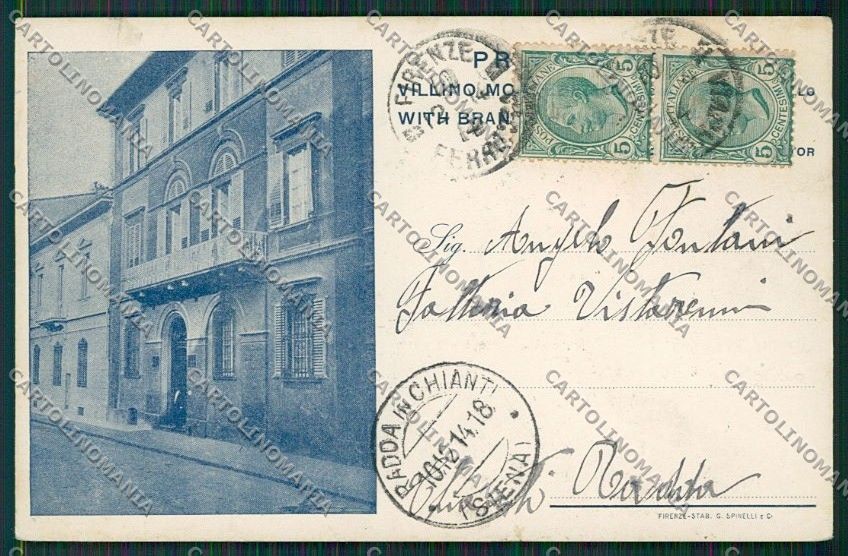 PR
VILLINO MO
WITH BRAN
OR
FIRENZE
FERROVIA
POSTE ITALIANE
CENTESIMI 5
CENTESIMI 5
Sig. Angelo Fontani
Fattoria Vistarenni
RADDA IN CHIANTI
10.12.14.18
(SIENA)
Chianti Radda
FIRENZE-STAB. G. SPINELLI e C.
CARTOLINOMANIA